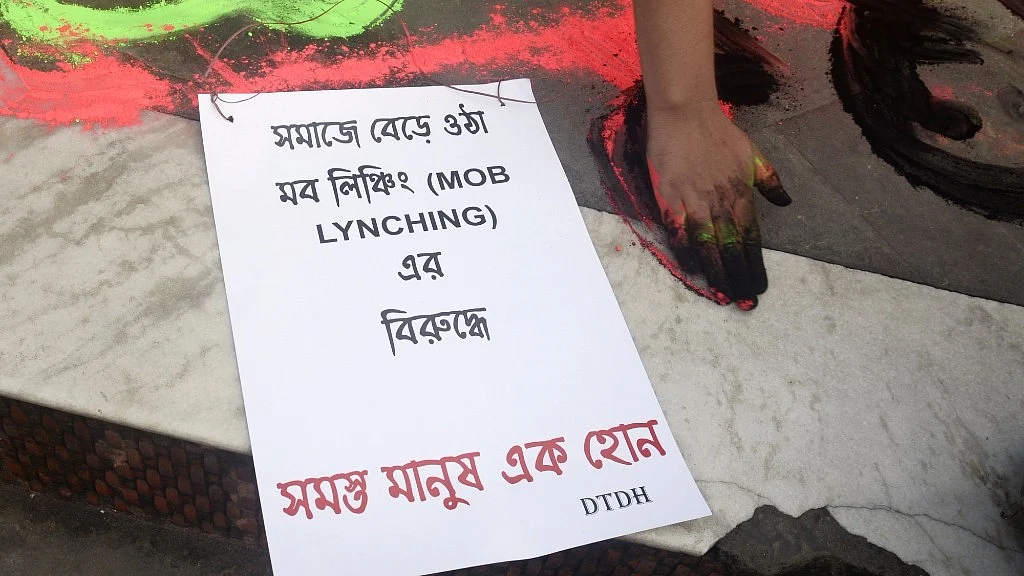 সমাজে বেড়ে ওঠা
মব লিঞ্চিং (MOB
LYNCHING)
এর
বিরুদ্ধে
সমস্ত মানুষ এক হোন
DTDH